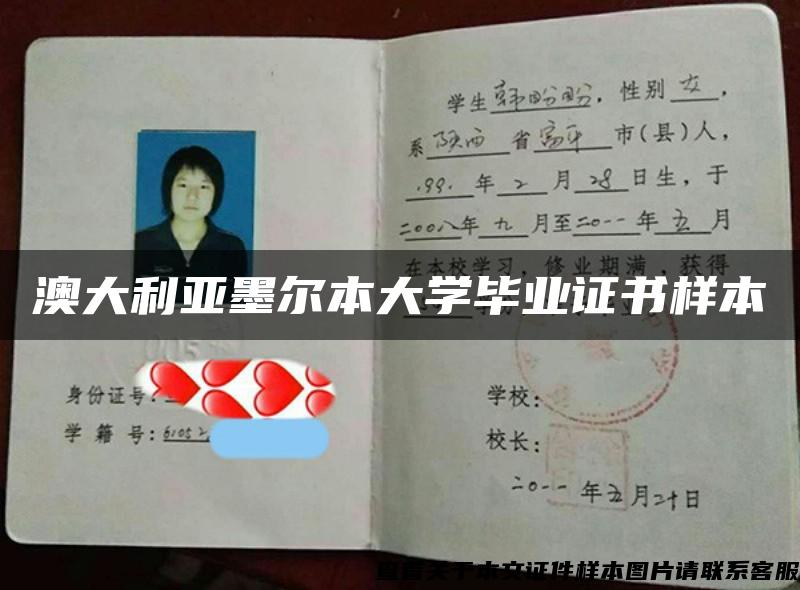 学生韩盼盼，性别女，
系陕西省富平市(县)人，
1991年2月28日生，于
二00八年九月至二0一一年五月
在本校学习，修业期满，获得
澳大利亚墨尔本大学毕业证书样本
身份证号：
学籍号：61052
学校：
校长：
二0一一年五月二十日
查看关于本文证件样本图片请联系客服